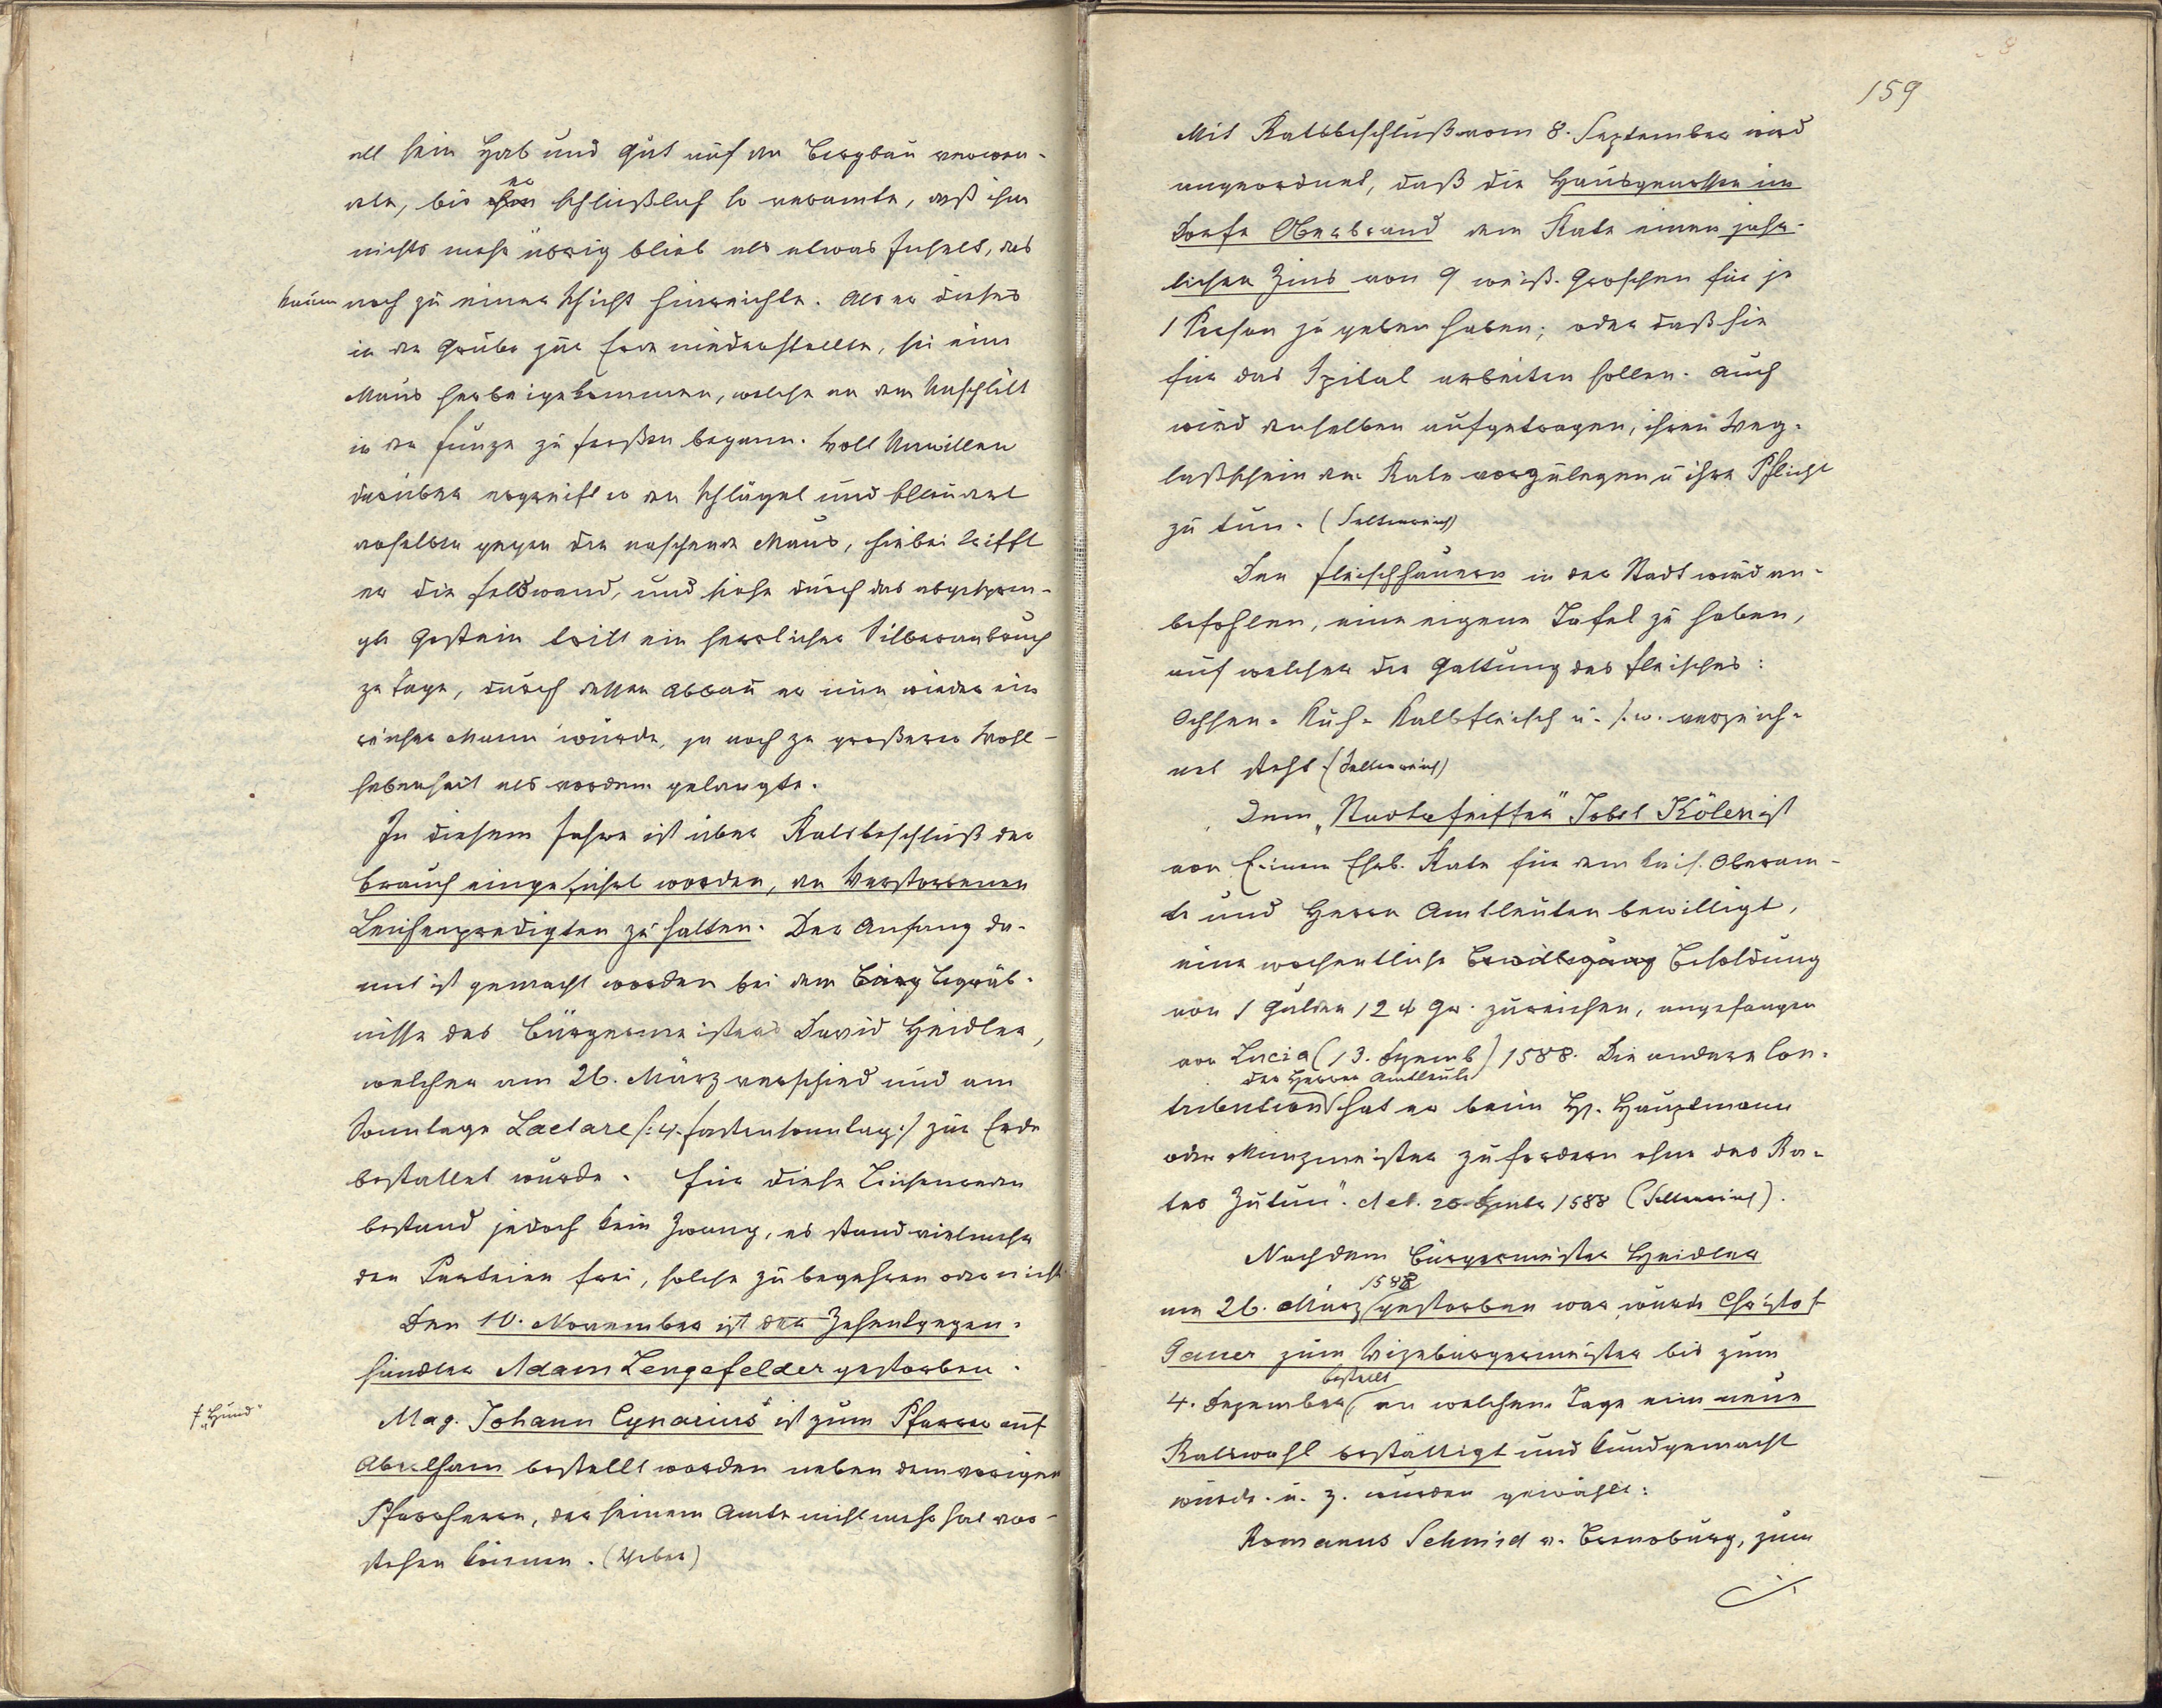 all sein Hab und Gut auf den Bergbau verwen-
dete, bis er schließlich so verarmte, daß ihm
nichts mehr übrig blieb als etwas Inselt, das
kaum noch zu einer Schicht hinreichte. Als er dieses
in der Grube zur Erde niederstellte, sei eine
Maus herbeigekommen, welche an dem Unschlitt
in der Funze zu freßen begann. Voll Unwillen
darüber ergreift er den Schlägel und schleudert
denselben gegen die naschende Maus, hiebei trifft
er die Felswand, und siehe durch das abgespren-
gte Gestein tritt ein herrlicher Silberanbruch
zu Tage, durch dessen Abbau er nun wieder ein
reicher Mann wurde, ja noch zu größerer Wohl-
habenheit als vordem gelangte.
In diesem Jahre ist über Ratsbeschluß der
Brauch eingeführt worden, den Verstorbenen
Leichenpredigten zu halten. Der Anfang da-
mit ist gemacht worden bei dem Bürg Begräb-
nisse des Bürgermeisters David Heidler,
welcher am 26. März verschied und am
Sonntage Laetare /: 4. Fastensonntag :/ zur Erde
bestattet wurde. Für diese Leichenreden
bestand jedoch kein Zwang, es stand vielmehr
den Parteien frei, solche zu begehren oder nicht
Den 10. November ist der Zehentgegen-
händler Adam Lengefelder gestorben.
† "Hund"
Mag. Johann Cynarius† ist zum Pfarrer auf
Abertham bestellt worden neben dem vorigen
Pfarrherrn, der seinem Amte nicht mehr hat vor-
stehen können. (Weber)
159
Mit Ratsbeschluß vom 8. September wird
angeordnet, daß die Hausgenossen im
Dorfe Oberbrand dem Rate einen jähr-
lichen Zins von 9 weiß. Groschen für je
1 Person zu geben haben; oder daß sie
für das Spital arbeiten sollen. Auch
wird denselben aufgetragen, ihren Weg-
laßschein dem Rate vorzulegen u ihre Pflicht
zu tun. (Seltenreich)
Den Fleischhauern in der Stadt wird an-
befohlen, eine eigene Tafel zu haben,
auf welcher die Gattung des Fleisches:
Ochsen- Kuh- Kalbfleisch u. s. w. verzeich-
net steht. (Seltenreich)
Dem "Stadtpfeiffer" Jobst Kölern ist
von Einem Ehrb. Rate für dem kais. Oberam-
te und Herrn Amtleuten bewilligt,
eine wochentliche Bewilligung Besoldung
von 1 Gulden 12 w Gr. zureichen, angefangen
von Lucia (13. Dezemb) 1588. Die andere Con-
der Herren Amtleute
tribution hat er beim H. Hauptmann
oder Münzmeister zu fordern ohne des Ra-
tes Zutun". Act. 20 Dzember 1588 (Seltenreich).
Nachdem Bürgermeister Heidler
1588
am 26. März gestorben war, wurde Christof
Gauer zum Vizebürgermeister bis zum
bestellt
4. Dezember, an welchem Tage eine neue
Ratswahl bestättigt und kundgemacht
wurde. u. z. wurden gewählt:
Romanus Schmid v. Brensburg, zum